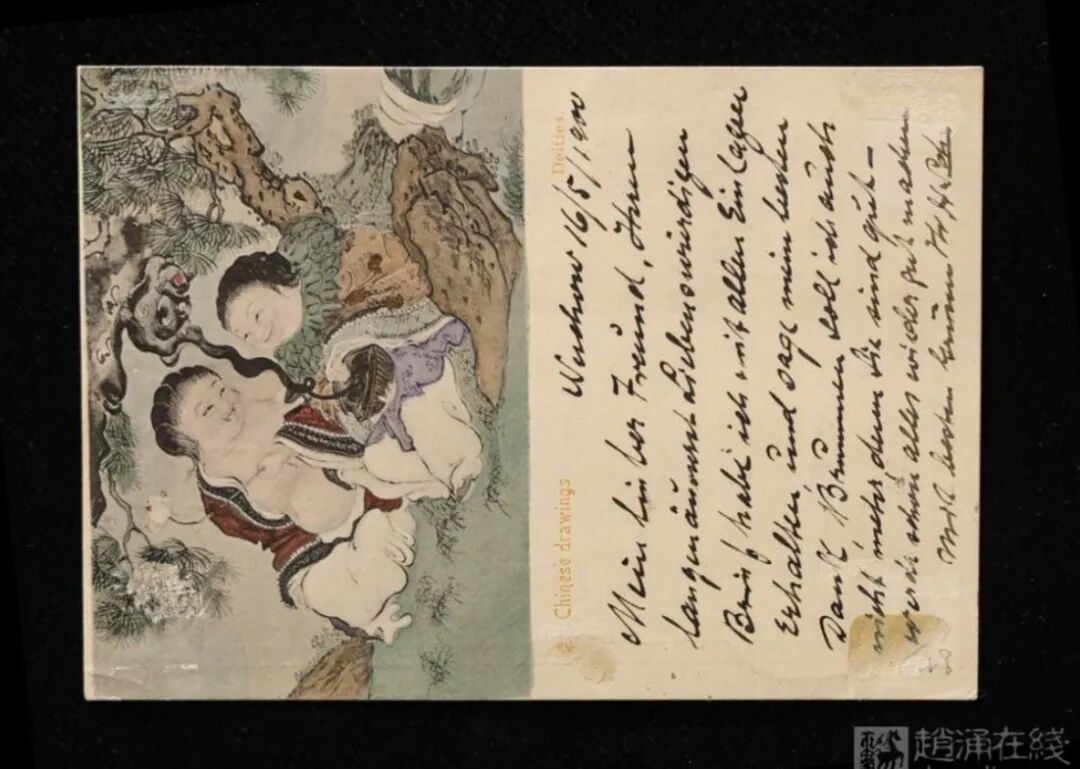 Chinese drawings
Deities.
Wuchow 16/5/1900
Mein lieber Freund, Ihren
langen äuserst Liebenswürdigen
Brief habe ich mit allen Einlagen
Erhalten und sage mein besten
Dank Brummen soll ich auch
nicht mehr denn Sie sind gut-
werde schon alles wieder gut machen
Mit besten
趙涌在綫